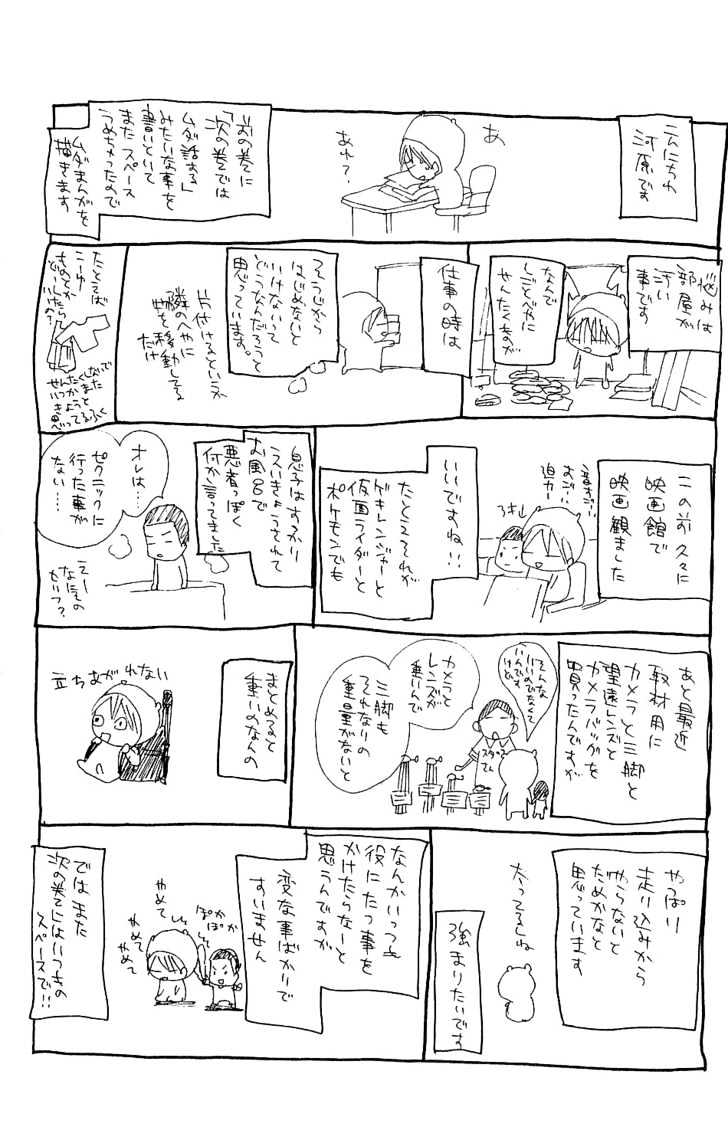 こんにちわ
河原です
あ
あれ？
前の巻に
「次の巻では
ムダ話する」
みたいな事を
書いといて
また スペース
うめちゃったので
ムダまんがを
描きます
悩みは
部屋が
汚い
事です
なんで
しごとべやに
せんたくものが
仕事の時は
そうじから
はじめないと
いけないって
どうなんだろうと
思っています。
片付けるというか
隣のへやに
物を移動してる
だけ
たとえば
こーゆー
ものとか
どーしたら
いい？
せんたくしないで
いつかまた
きようと
思ってるふく
この前 久々に
映画館で
映画観ました
音すご…
おごい…
迫力…
いいですね！！
たとえそれが
ゲキレンジャーと
仮面ライダーと
ポケモンでも
息子はすっかり
えいきょうされて
お風呂で
悪者っぽく
何か言ってました
オレは…
ピクニックに
行った事が
ない…
えー
なにその
せりふ？
あと最近
取材用に
カメラと三脚と
望遠レンズと
カメラバッグを
買ったんですが
そんな
いいのでなくて
いいんです
けど
スタッフ
さん
カメラと
レンズが
重いんで
三脚も
それなりの
重量がないと
まとめると
重いのなんの
立ちあがれない
やっぱり
走り込みから
やらないと
だめかなと
思っています
太ってるしね
強まりたいです
なんかいつも
役にたつ事を
かけたらなーと
思うんですが
変な事ばかりで
すいません
ぽかぽか
ぽか
やめて
やめて
やめて
ではまた
次の巻にはいつもの
スペースで！！